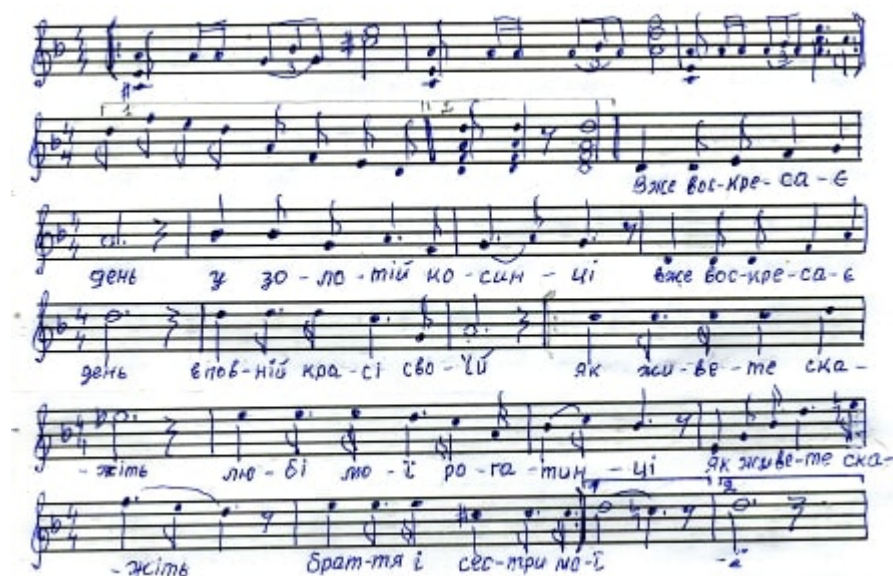 Вже вос-кре-са-є
день у зо-ло-тій ко-син-ці вже вос-кре-са-є
день в пов-ній кра-сі сво-їй Як жи-ве-те ска-
-жіть лю-бі мо-ї ро-га-тин-ці Як живе-те ска-
-жіть брат-тя і сес-три мо-ї -ї